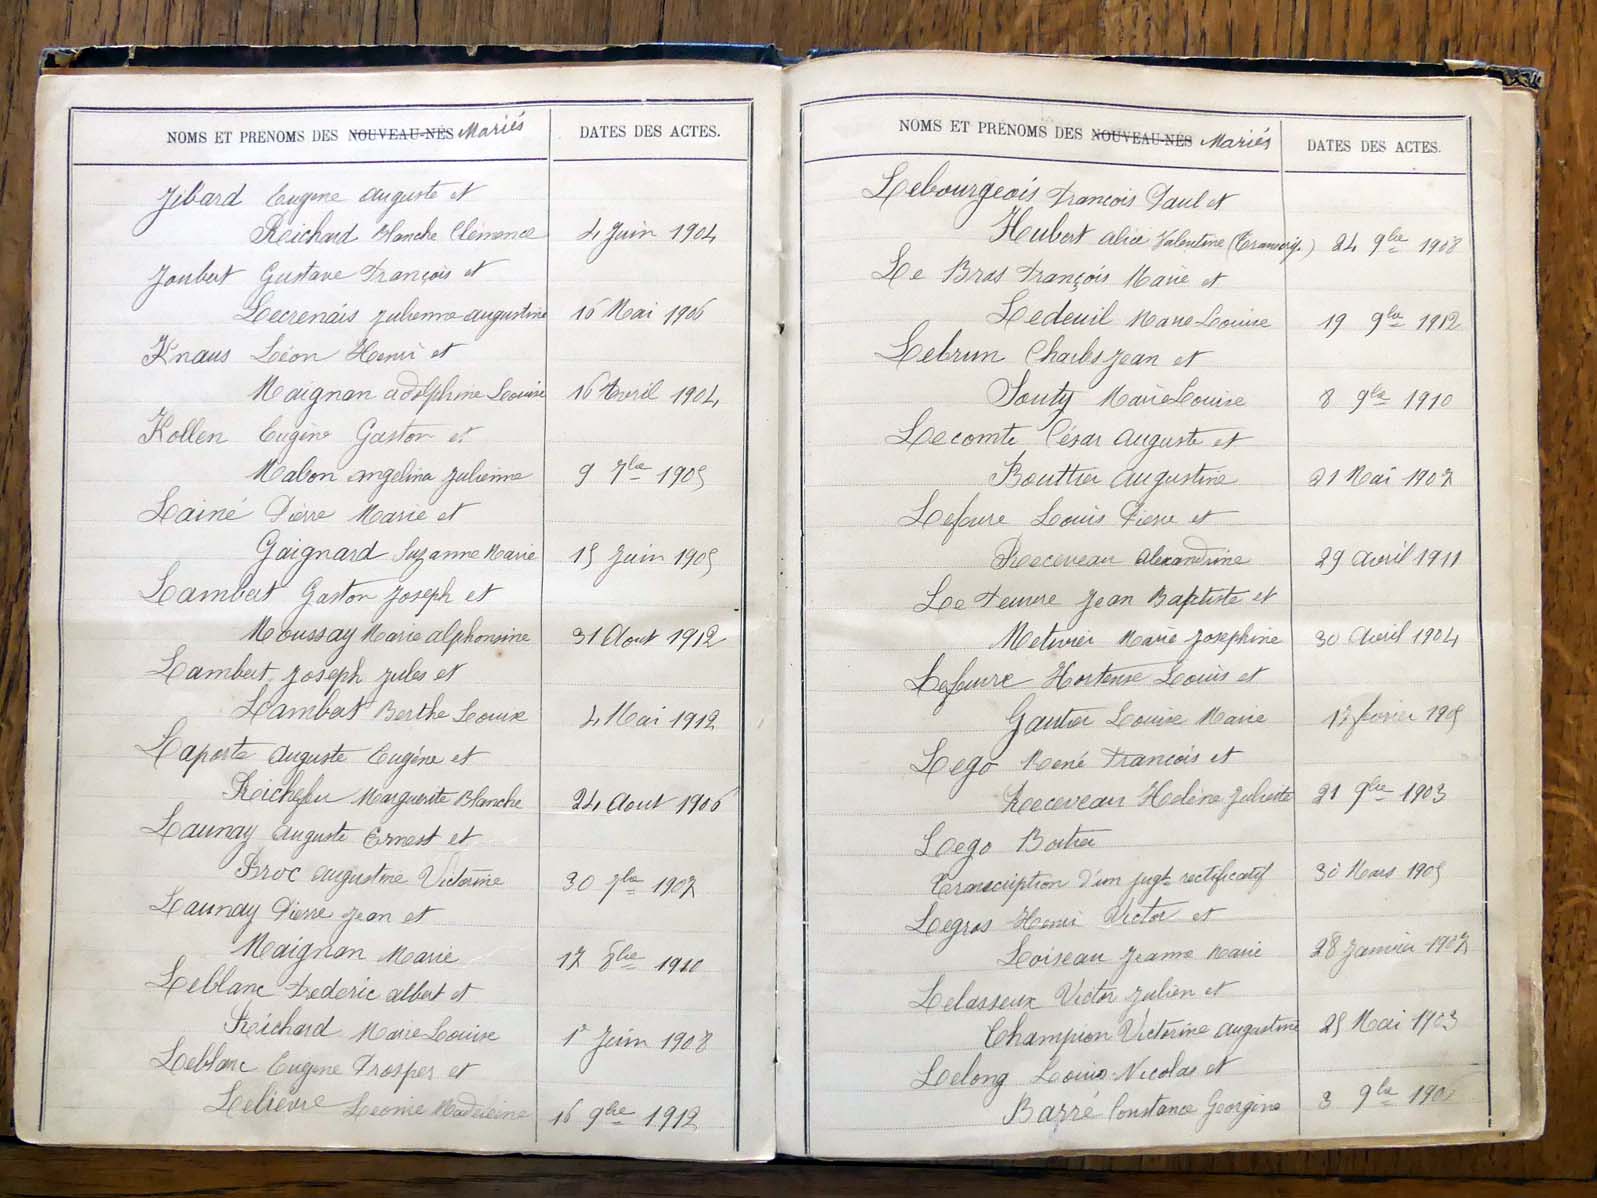 NOMS ET PRENOMS DES NOUVEAU-NÉS Mariés DATES DES ACTES.
Jibard Eugène Auguste et
Reichard Blanche Clémence 4 Juin 1904
Joubert Gustave François et
Lecrenais Julienne Augustine 16 Mai 1906
Knaus Léon Henri et
Maignan Adolphine Louise 16 Avril 1904
Kollen Eugène Gaston et
Mabon Angelina Julienne 9 7bre 1905
Lainé Pierre Marie et
Gaignard Suzanne Marie 15 Juin 1905
Lambert Gaston Joseph et
Moussay Marie Alphonsine 31 Aout 1912
Lambert Joseph Jules et
Lambert Berthe Louise 4 Mai 1912
Laporte Auguste Eugène et
Richefeu Marguerite Blanche 24 Aout 1906
Launay Auguste Ernest et
Broc Augustine Victorine 30 7bre 1907
Launay Pierre Jean et
Maignan Marie 17 8bre 1910
Leblanc Frederic Albert et
Richard Marie Louise 1er Juin 1908
Leblanc Eugène Prosper et
Lelievre Leonie Madeleine 16 9bre 1912
NOMS ET PRENOMS DES NOUVEAU-NÉS Mariés DATES DES ACTES.
Lebourgeois François Paul et
Hubert Alice Valentine (Transcrip.) 24 9bre 1908
Le Bras François Marie et
Ledeuil Marie Louise 19 9bre 1912
Lebrun Charles Jean et
Souty Marie Louise 8 9bre 1910
Lecomte César Auguste et
Bouttier Augustine 21 Mai 1907
Lefeuvre Louis Pierre et
Receveau Alexandrine 29 Avril 1911
Le Feuvre Jean Baptiste et
Metivier Marie Josephine 30 Avril 1904
Lefeuvre Hortense Louis et
Gautier Louise Marie 17 fevrier 1905
Lego René François et
Receveau Helène Juliette 21 9bre 1903
Lego Boitier
Transcription d'un jugt rectificatif 30 Mars 1905
Legras Henri Victor et
Loiseau Jeanne Marie 28 Janvier 1907
Lelasseux Victor Julien et
Champion Victorine Augustine 25 Mai 1903
Lelong Louis Nicolas et
Barré Constance Georgine 3 9bre